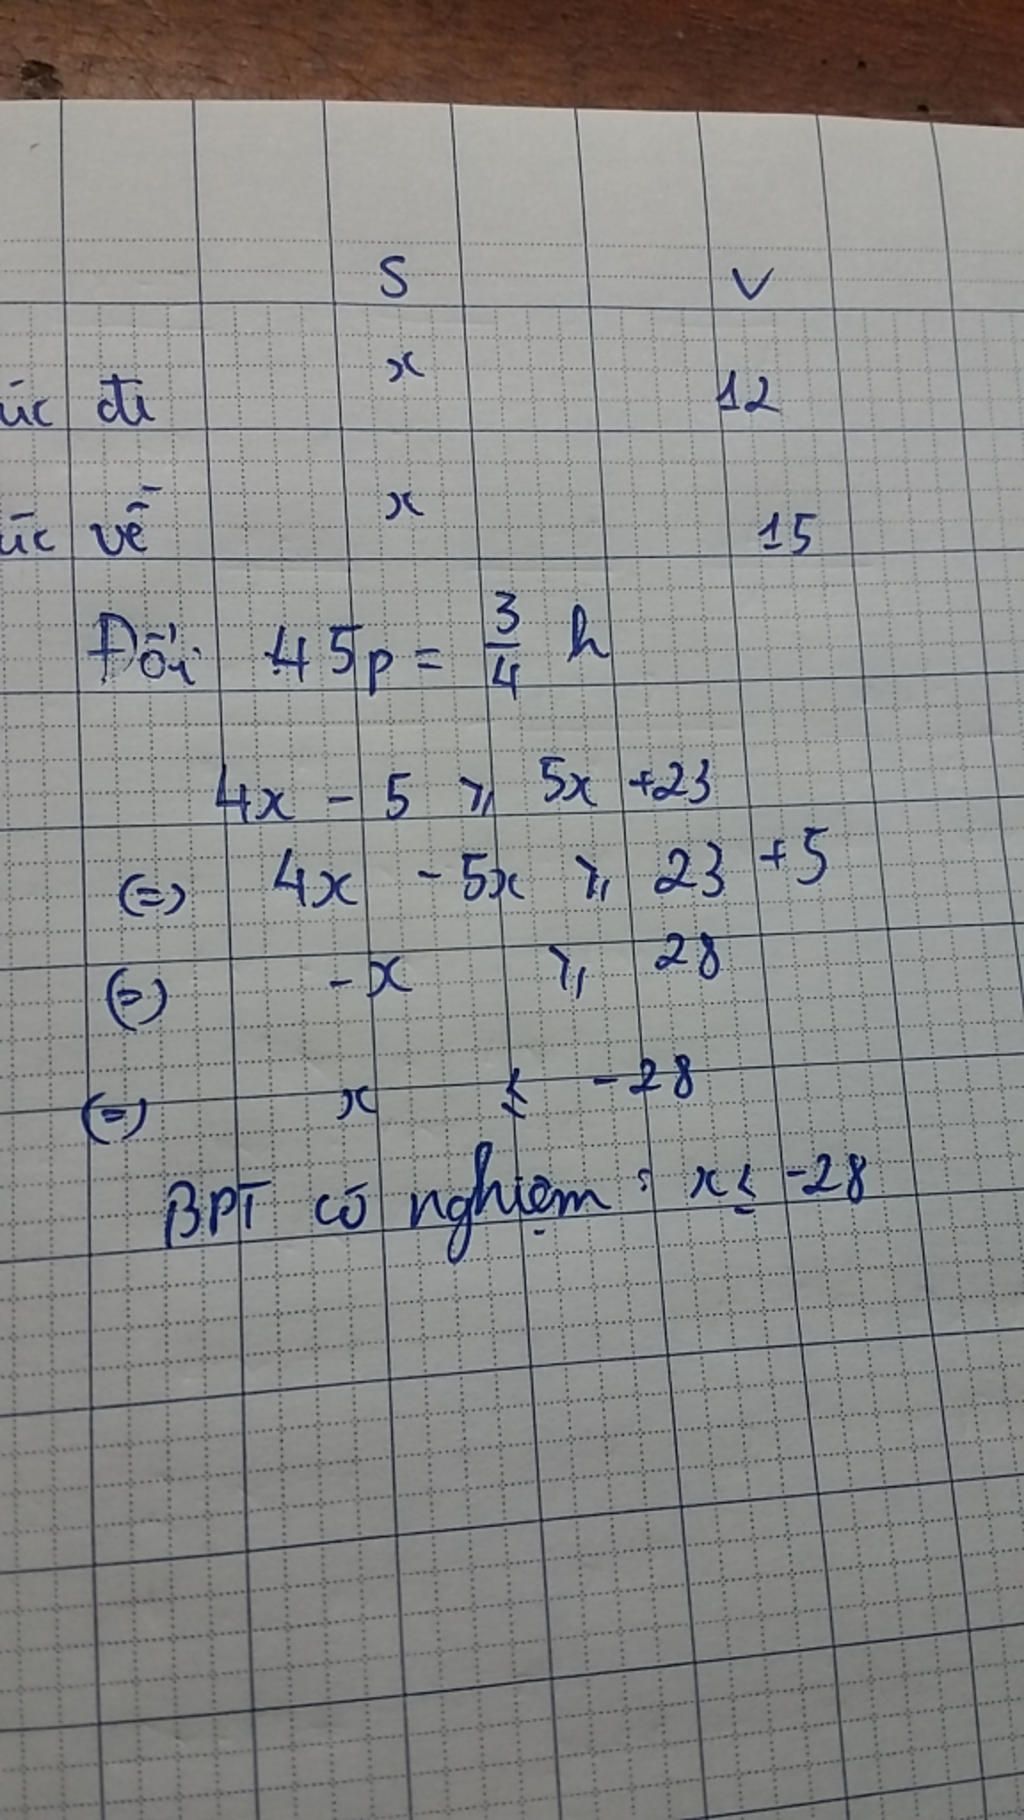 S V
úc đi x 12
úc về x 15
Đổi 45p = 3/4 h
4x - 5 ⩾ 5x + 23
(=) 4x - 5x ⩾ 23 + 5
(=) -x ⩾ 28
(=) x ⩽ -28
BPT có nghiệm : x ⩽ -28